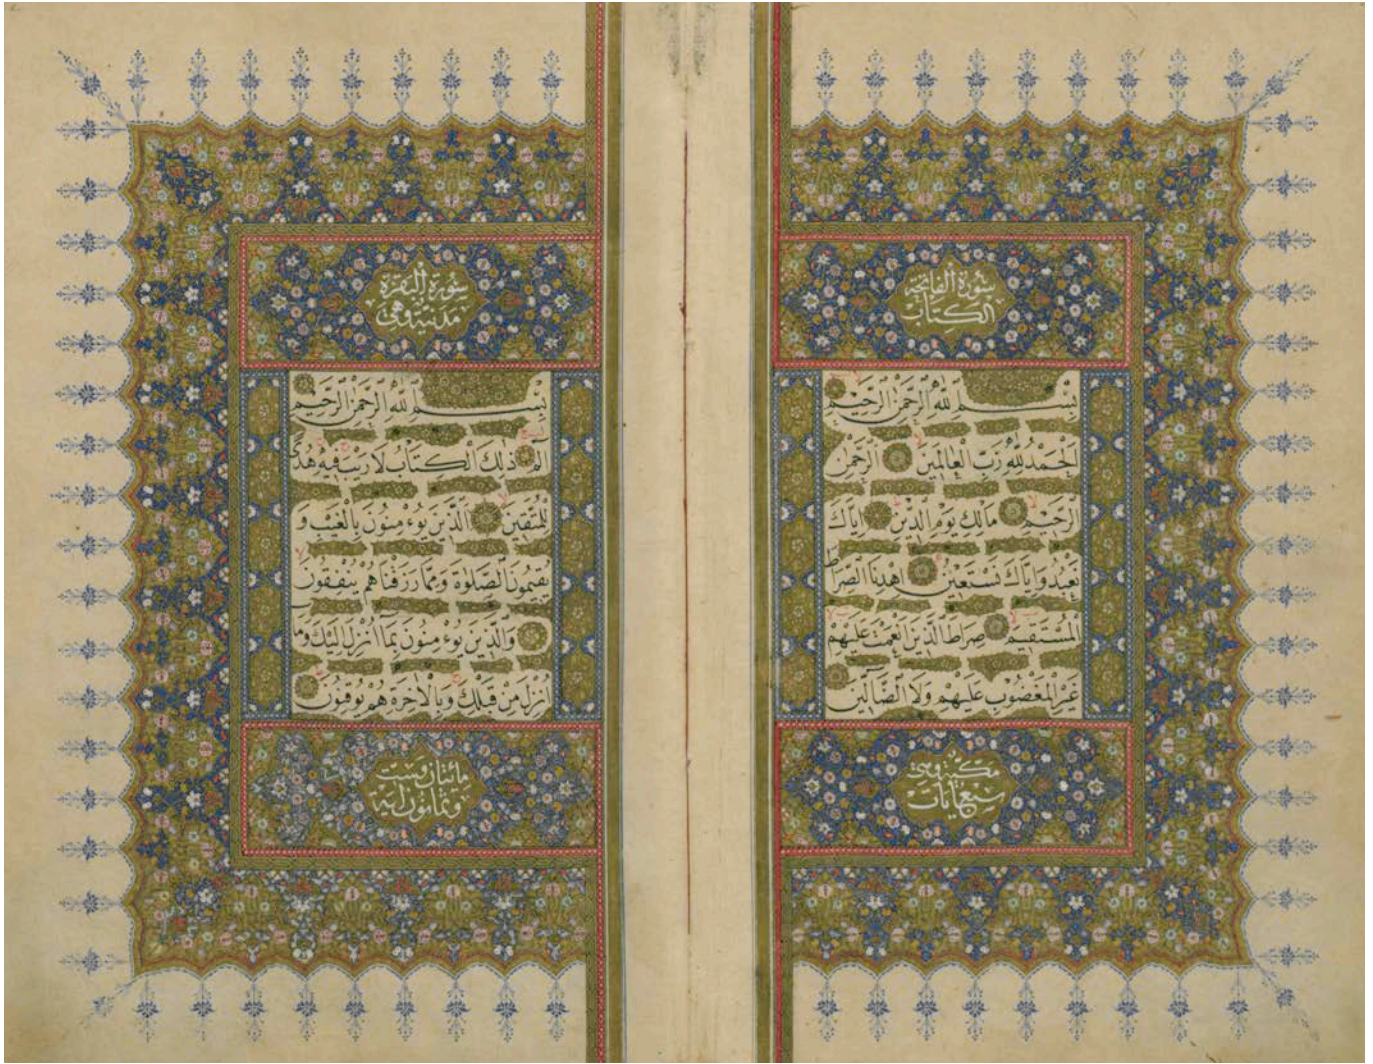 سُورَةُ الْفَاتِحَةِ
الْكِتَابِ
بِسْمِ اللّٰهِ الرَّحْمٰنِ الرَّحِيمِ
اَلْحَمْدُ لِلّٰهِ رَبِّ الْعَالَمِينَ الرَّحْمٰنِ
الرَّحِيمِ مَالِكِ يَوْمِ الدِّينِ اِيَّاكَ
نَعْبُدُ وَاِيَّاكَ نَسْتَعِينُ اِهْدِنَا الصِّرَاطَ
الْمُسْتَقِيمَ صِرَاطَ الَّذِينَ اَنْعَمْتَ عَلَيْهِمْ
غَيْرِ الْمَغْضُوبِ عَلَيْهِمْ وَلَا الضَّالِّينَ
مَكِّيَّةٌ وَهِيَ
سَبْعُ اٰيَاتٍ
سُورَةُ الْبَقَرَةِ
مَدَنِيَّةٌ وَهِيَ
بِسْمِ اللّٰهِ الرَّحْمٰنِ الرَّحِيمِ
الٓمٓ ذٰلِكَ الْكِتَابُ لَا رَيْبَ فِيهِ هُدًى
لِلْمُتَّقِينَ اَلَّذِينَ يُؤْمِنُونَ بِالْغَيْبِ وَ
يُقِيمُونَ الصَّلٰوةَ وَمِمَّا رَزَقْنَاهُمْ يُنْفِقُونَ
وَالَّذِينَ يُؤْمِنُونَ بِمَا اُنْزِلَ اِلَيْكَ وَمَا
اُنْزِلَ مِنْ قَبْلِكَ وَبِالْاٰخِرَةِ هُمْ يُوقِنُونَ
مِائَتَانِ وَسِتٌّ
وَثَمَانُونَ اٰيَةً